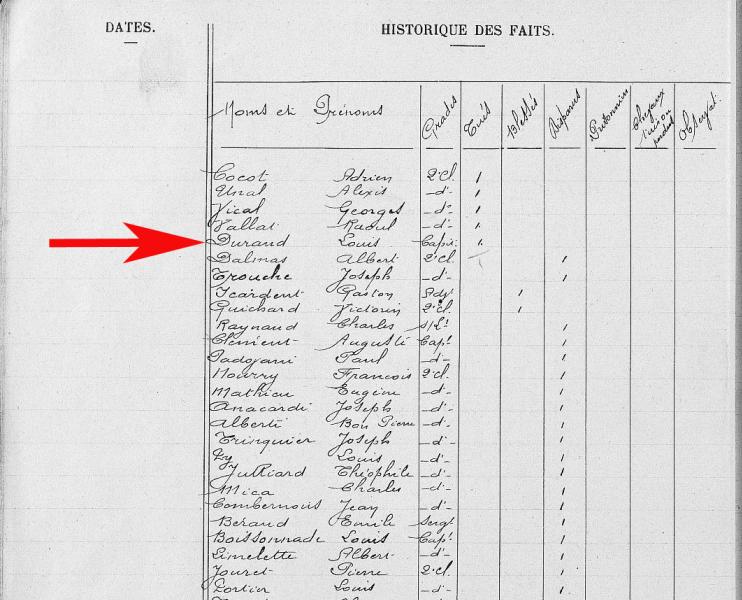 DATES. HISTORIQUE DES FAITS.
Noms et Prénoms Grades Tués Blessés Disparus Prisonniers Chevaux tués ou perdus Observat.
Cocot Adrien 2e Cl.
Unal Alexis -d°-
Vical Georges -d°-
Vallat Raoul -d°-
Durand Louis Capit.
Dalmas Albert 2e Cl.
Trouche Joseph -d°-
Icardent Gaston Adjt
Guichard Victorin 2e Cl.
Raynaud Charles S/Lt
Clément Auguste Capl.
Padovani Paul -d°-
Mourry Francois 2e Cl.
Mathieu Eugène -d°-
Anacardi Joseph -d°-
Alberti Bon Pierre -d°-
Trinquier Joseph -d°-
Py Louis -d°-
Julliard Théophile -d°-
Mica Charles -d°-
Combernous Jean -d°-
Béraud Emile Sergt
Boissonnade Louis Capl.
Limelette Albert -d°-
Jouret Pierre 2e Cl.
Portier Louis -d°-